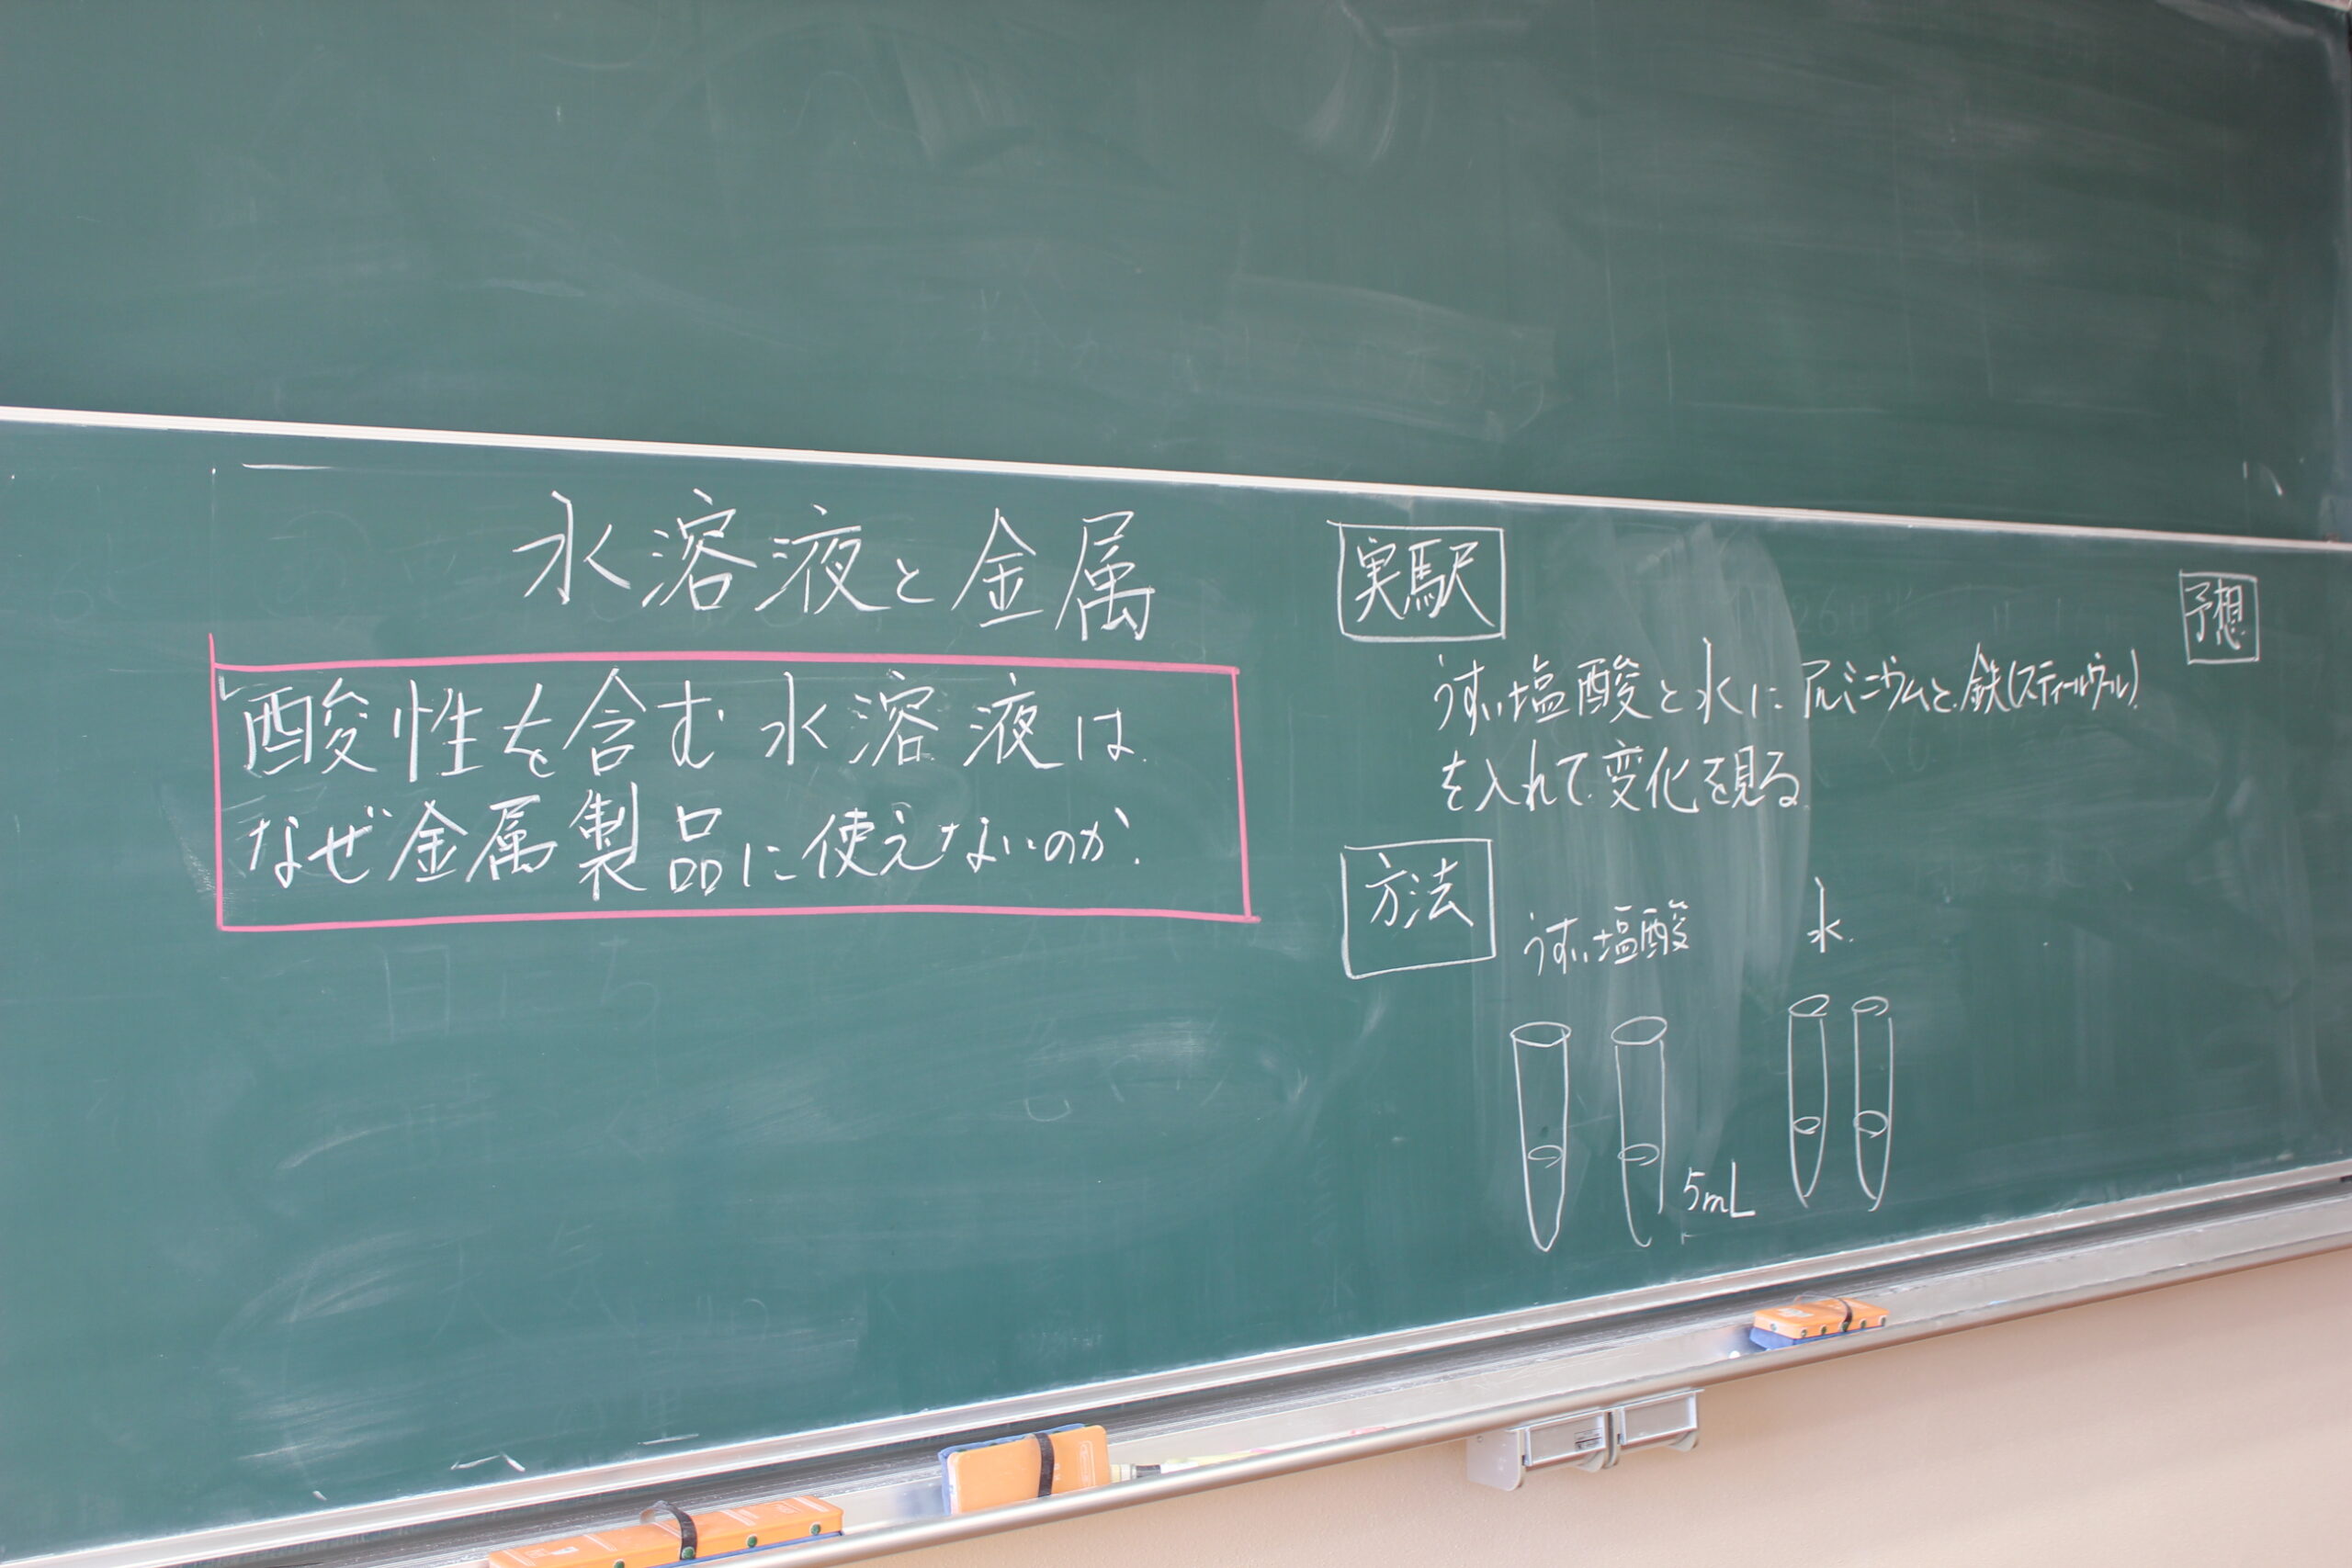 水溶液と金属
酸性を含む水溶液は
なぜ金属製品に使えないのか.
実駅
うすい塩酸と水にアルミニウムと鉄(スティールウール)
を入れて変化を見る
方法
うすい塩酸
水
5mL
予想